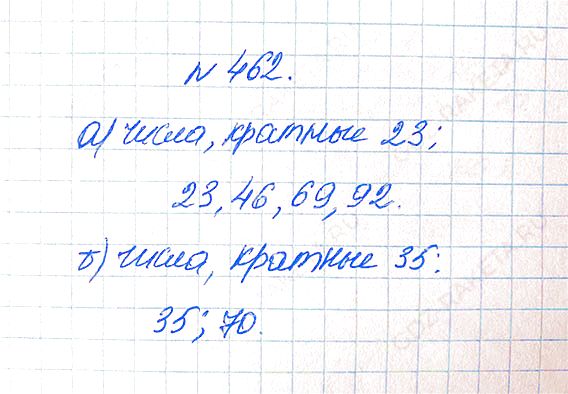 N 462.
а) числа, кратные 23;
23, 46, 69, 92.
б) числа, кратные 35:
35; 70.